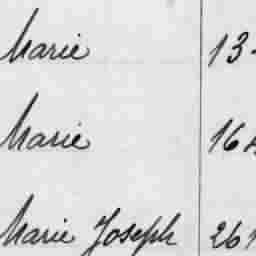 Marie 13
Marie 16
Marie Joseph 26